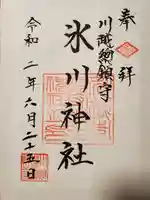 奉拝
川越総鎮守
氷川神社
令和二年六月二十五日